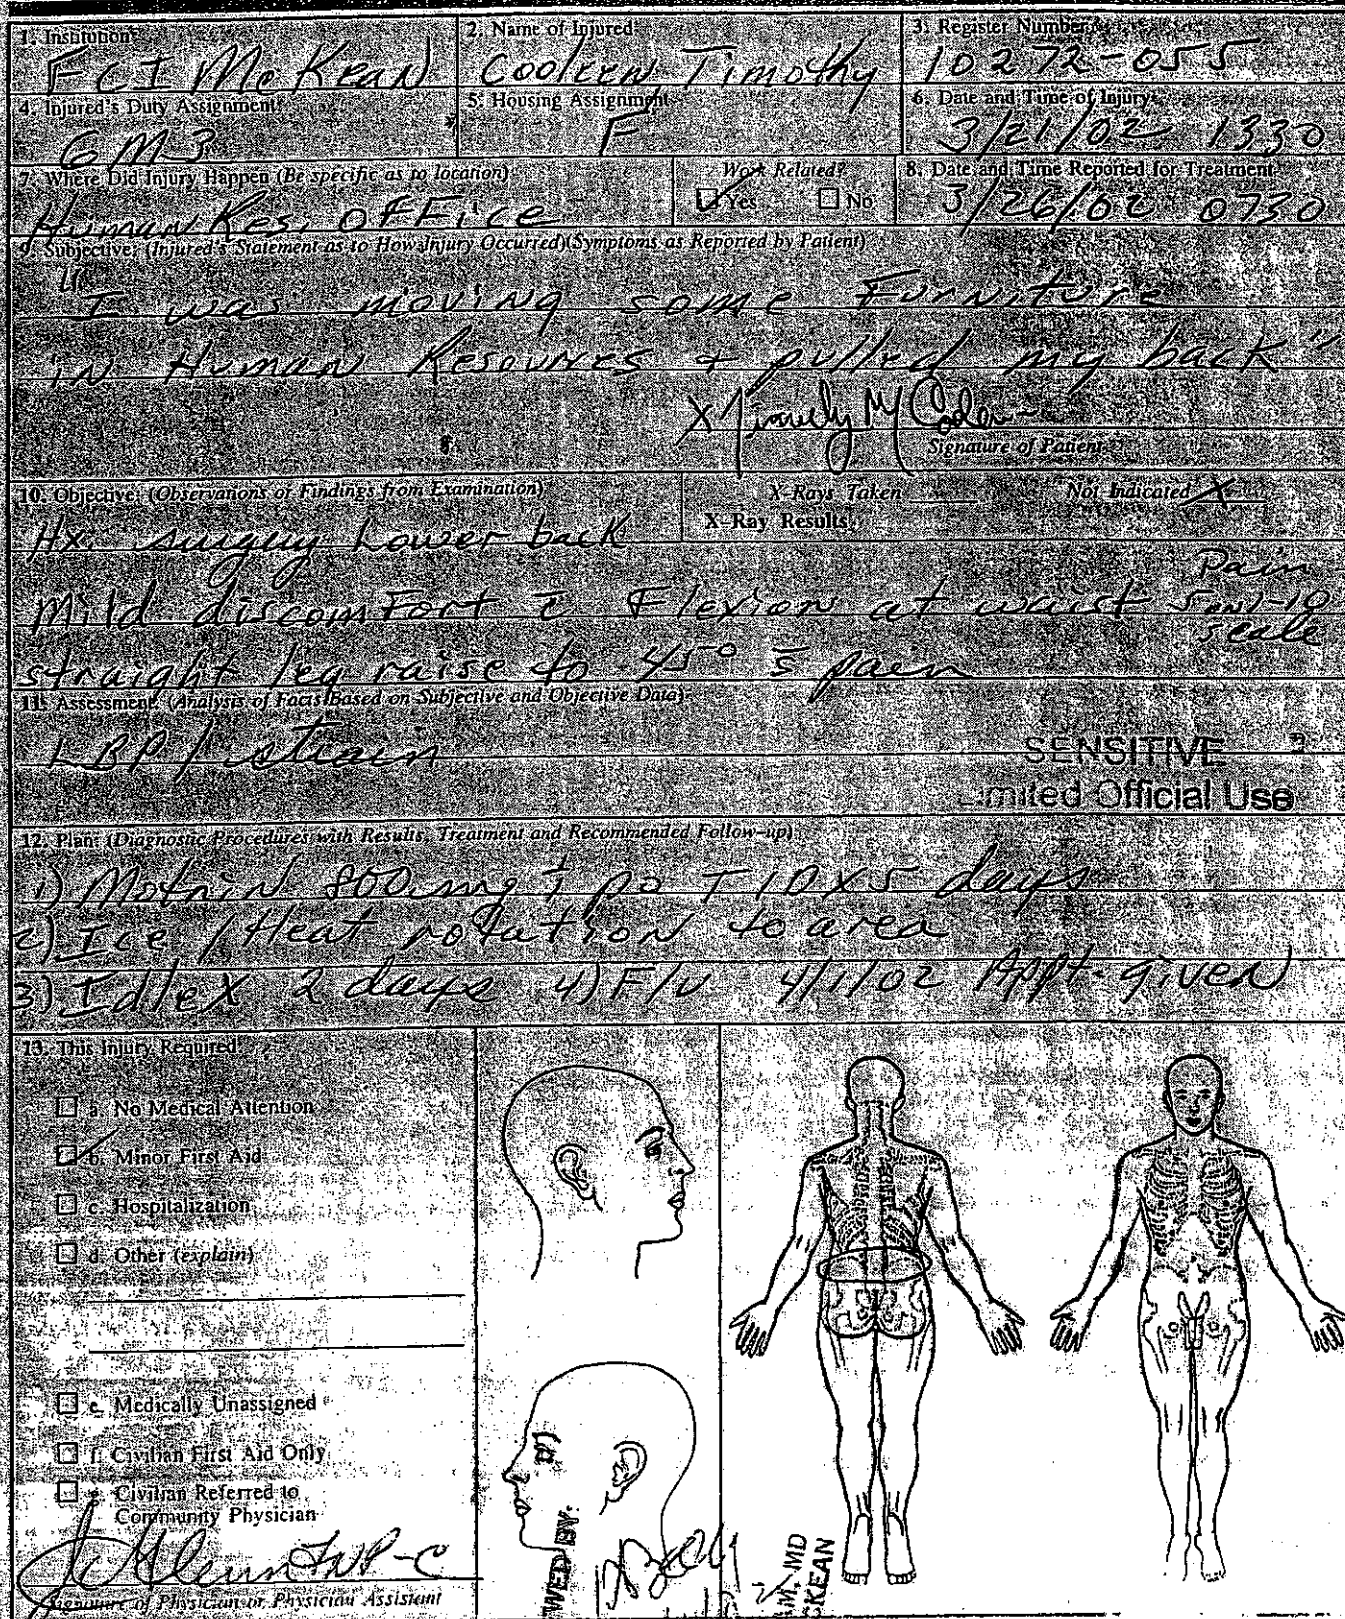 1. Institution
FCI McKean
2. Name of Injured
Cooleen Timothy
3. Register Number
10272-055
4. Injured's Duty Assignment
GM3
5. Housing Assignment
F
6. Date and Time of Injury
3/21/02 1330
7. Where Did Injury Happen (Be specific as to location)
Human Res. OFFice
Work Related?
Yes No
8. Date and Time Reported for Treatment
3/26/02 0730
9. Subjective: (Injured's Statement as to How Injury Occurred)(Symptoms as Reported by Patient)
"I was moving some Furniture
in Human Resources + pulled my back"
X
Signature of Patient
10. Objective: (Observations or Findings from Examination)
X-Rays Taken Not Indicated X
X-Ray Results
Hx. surgery Lower back
Mild discomFort c̄ Flexion at waist
Pain
5 on 1-10
scale
straight leg raise to 45° s̄ pain
11. Assessment: (Analysis of Facts Based on Subjective and Objective Data)
LBP / strain
SENSITIVE
Limited Official Use
12. Plan: (Diagnostic Procedures with Results, Treatment and Recommended Follow-up)
1) Motrin 800 mg i po TID X 5 days
2) Ice / Heat rotation to area
3) Idle X 2 days 4) F/u 4/1/02 Appt. given
13. This Injury Required
a. No Medical Attention
b. Minor First Aid
c. Hospitalization
d. Other (explain)
e. Medically Unassigned
f. Civilian First Aid Only
g. Civilian Referred to
Community Physician
Signature of Physician or Physician Assistant
WED BY:
M, MD
CKEAN